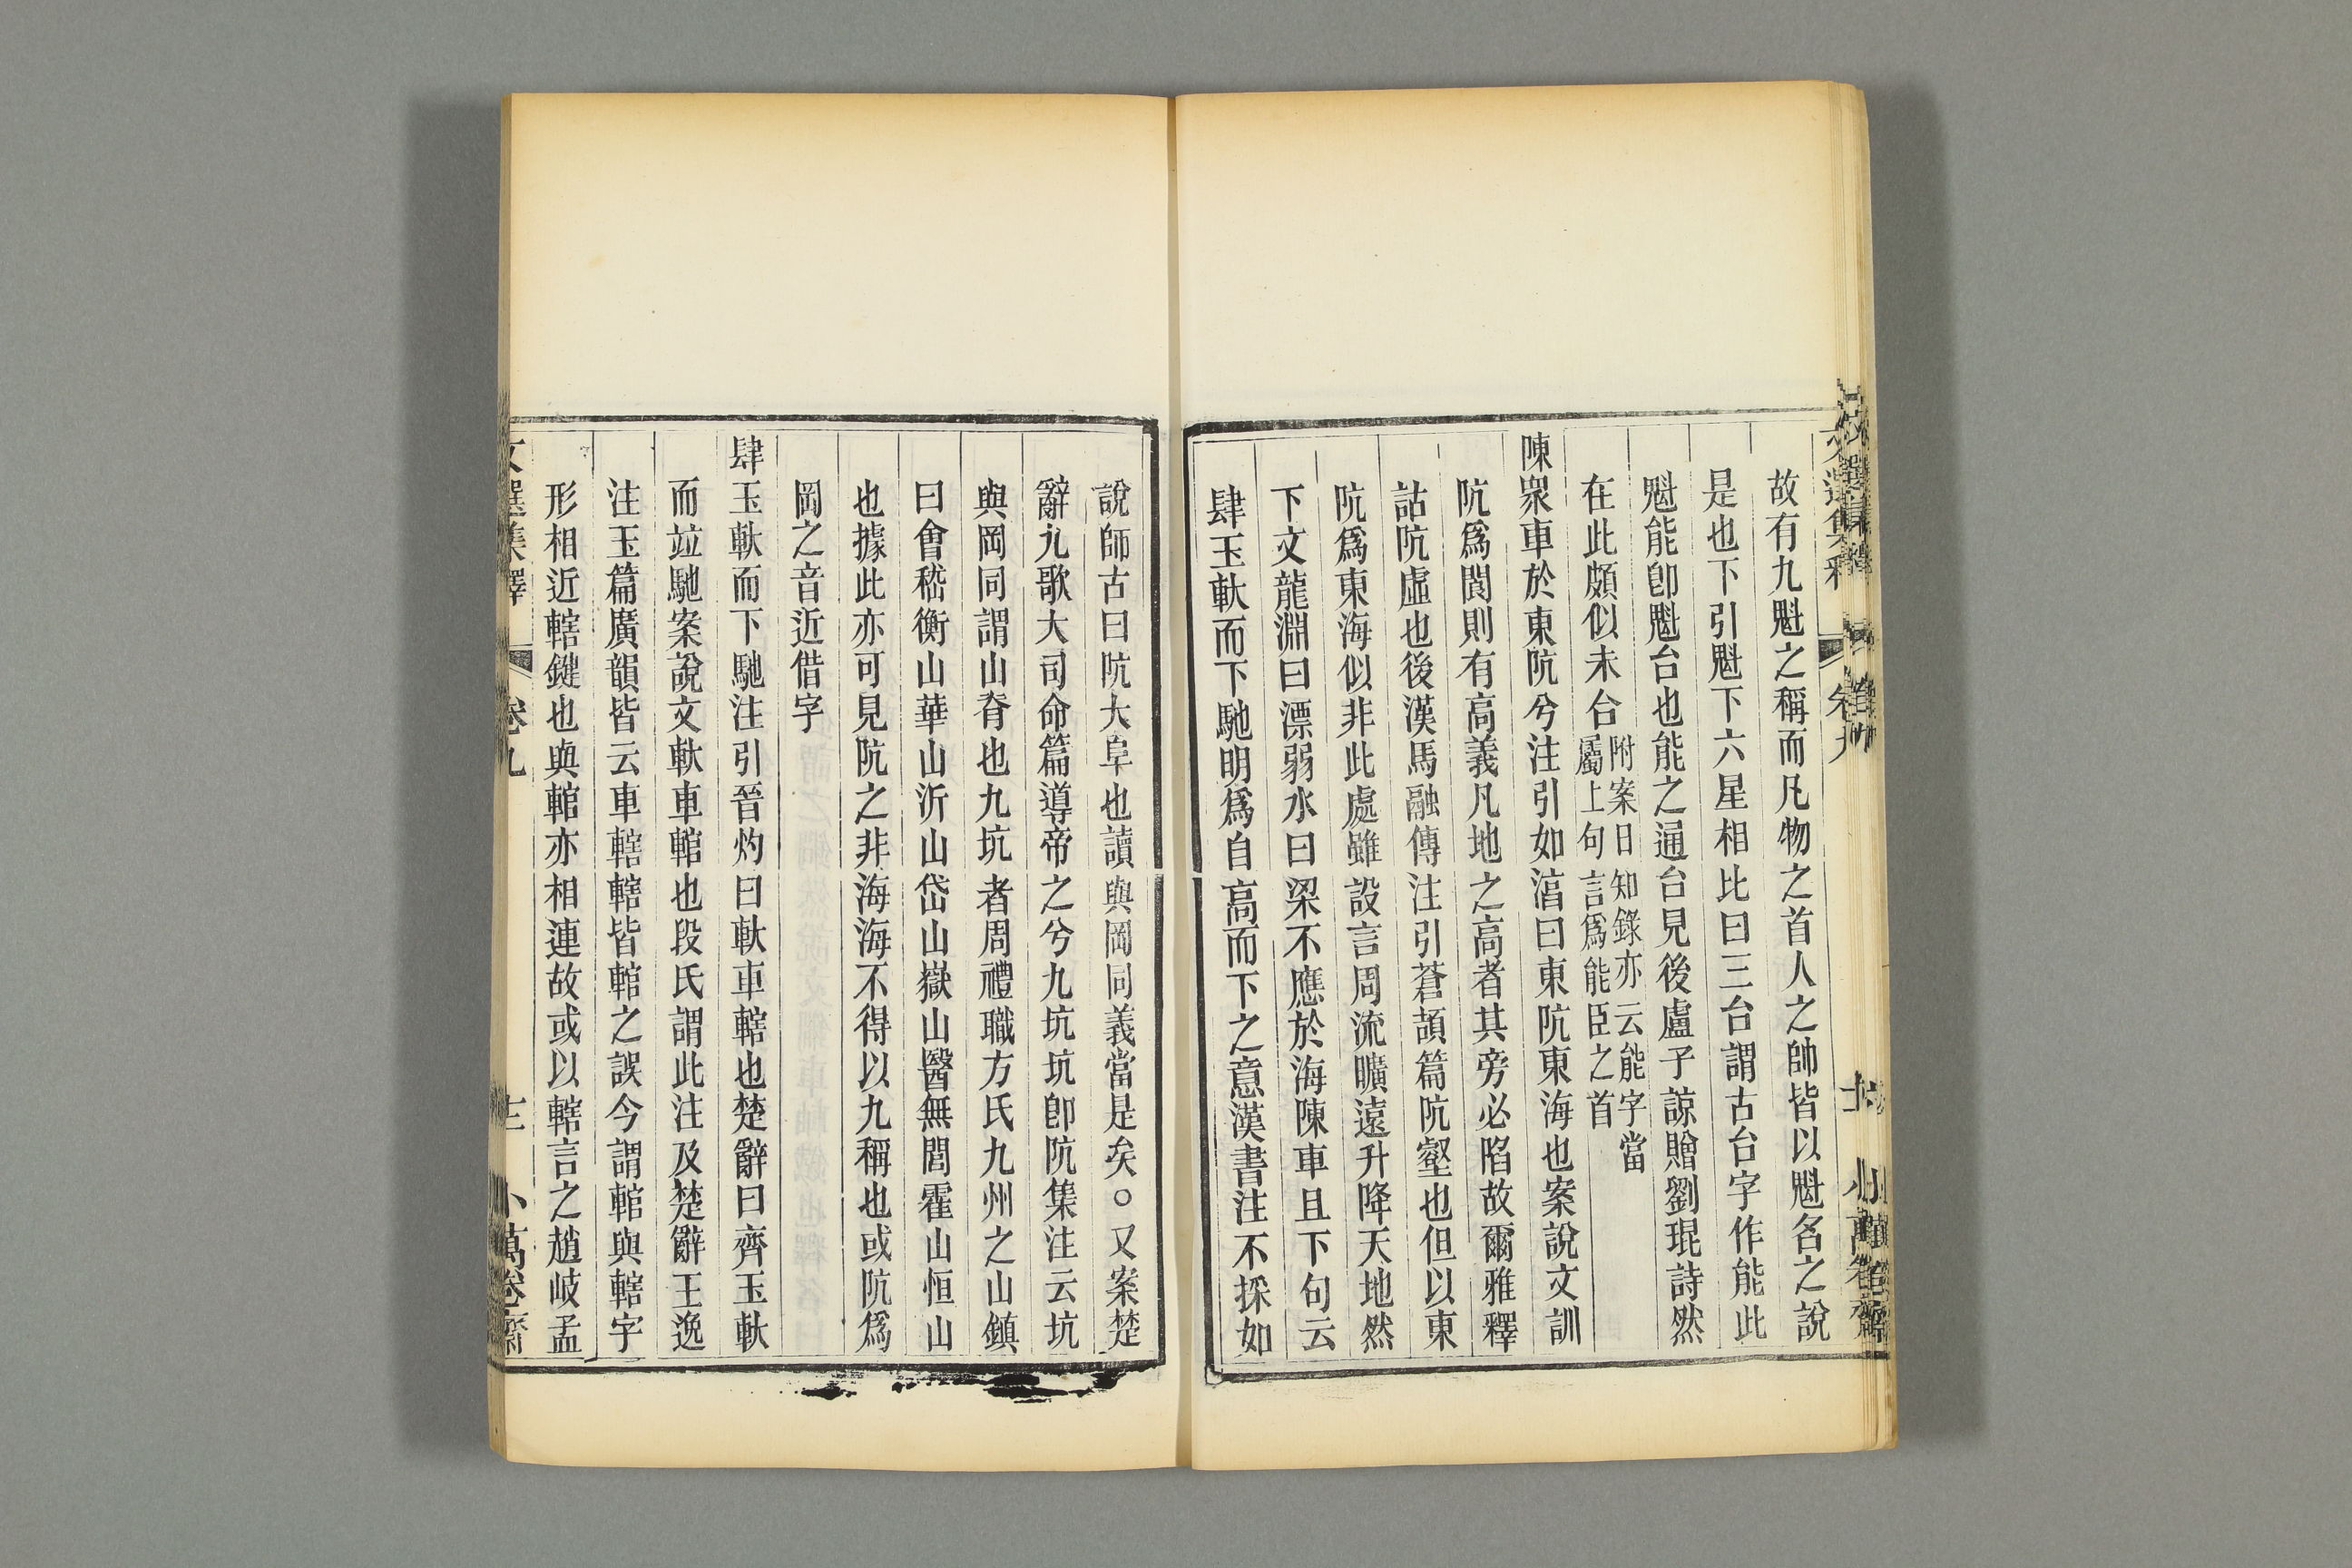 故有九魁之稱而凡物之首人之帥皆以魁名之說
是也下引魁下六星相比曰三台謂古台字作能此
魁能卽魁台也能之通台見後盧子諒贈劉琨詩然
在此頗似未合附案日知錄亦云能字當屬上句言爲能臣之首
陳衆車於東阬兮注引如湻曰東阬東海也案說文訓
阬爲閬則有高義凡地之高者其旁必陷故爾雅釋
詁阬虛也後漢馬融傳注引蒼頡篇阬壑也但以東
阬爲東海似非此處雖設言周流曠遠升降天地然
下文龍淵曰漂弱水曰梁不應於海陳車且下句云
肆玉軑而下馳明爲自高而下之意漢書注不採如
說師古曰阬大阜也讀與岡同義當是矣○又案楚
辭九歌大司命篇導帝之兮九坑坑卽阬集注云坑
與岡同謂山脊也九坑者周禮職方氏九州之山鎮
曰會嵇衡山華山沂山岱山嶽山醫無閭霍山恒山
也據此亦可見阬之非海海不得以九稱也或阬爲
岡之音近借字
肆玉軑而下馳注引晉灼曰軑車轄也楚辭曰齊玉軑
而竝馳案說文軑車輨也段氏謂此注及楚辭王逸
注玉篇廣韻皆云車轄轄皆輨之誤今謂輨與轄字
形相近轄鍵也與輨亦相連故或以轄言之趙岐孟
文選集釋 卷九 十三 小萬卷齋